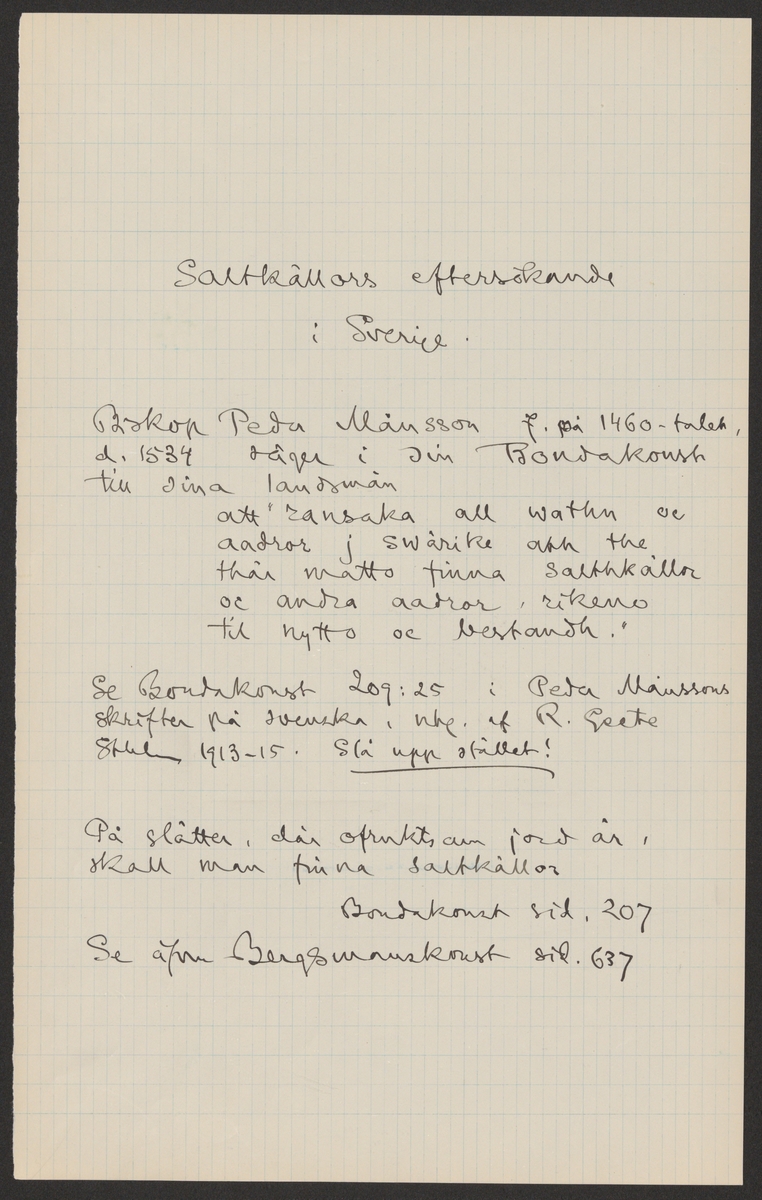 Saltkällors eftersökande
i Sverige.
Biskop Peder Månsson f. på 1460-talet,
d. 1534 säger i sin Bondakonst
till sina landsmän
att "ransaka all wathn oc
aadror j swärike ath the
thär matto finna salthkällor
oc andra aadror, rikeno
til nytto oc bestandh."
Se Bondakonst 209:25 i Peder Månssons
skrifter på svenska, utg. af R. Geete
Sthlm 1913-15. Slå upp stället!
På slätter, där ofruktsam jord är,
skall man finna saltkällor
Bondakonst sid. 207
Se äfven Bergsmanskonst sid. 637